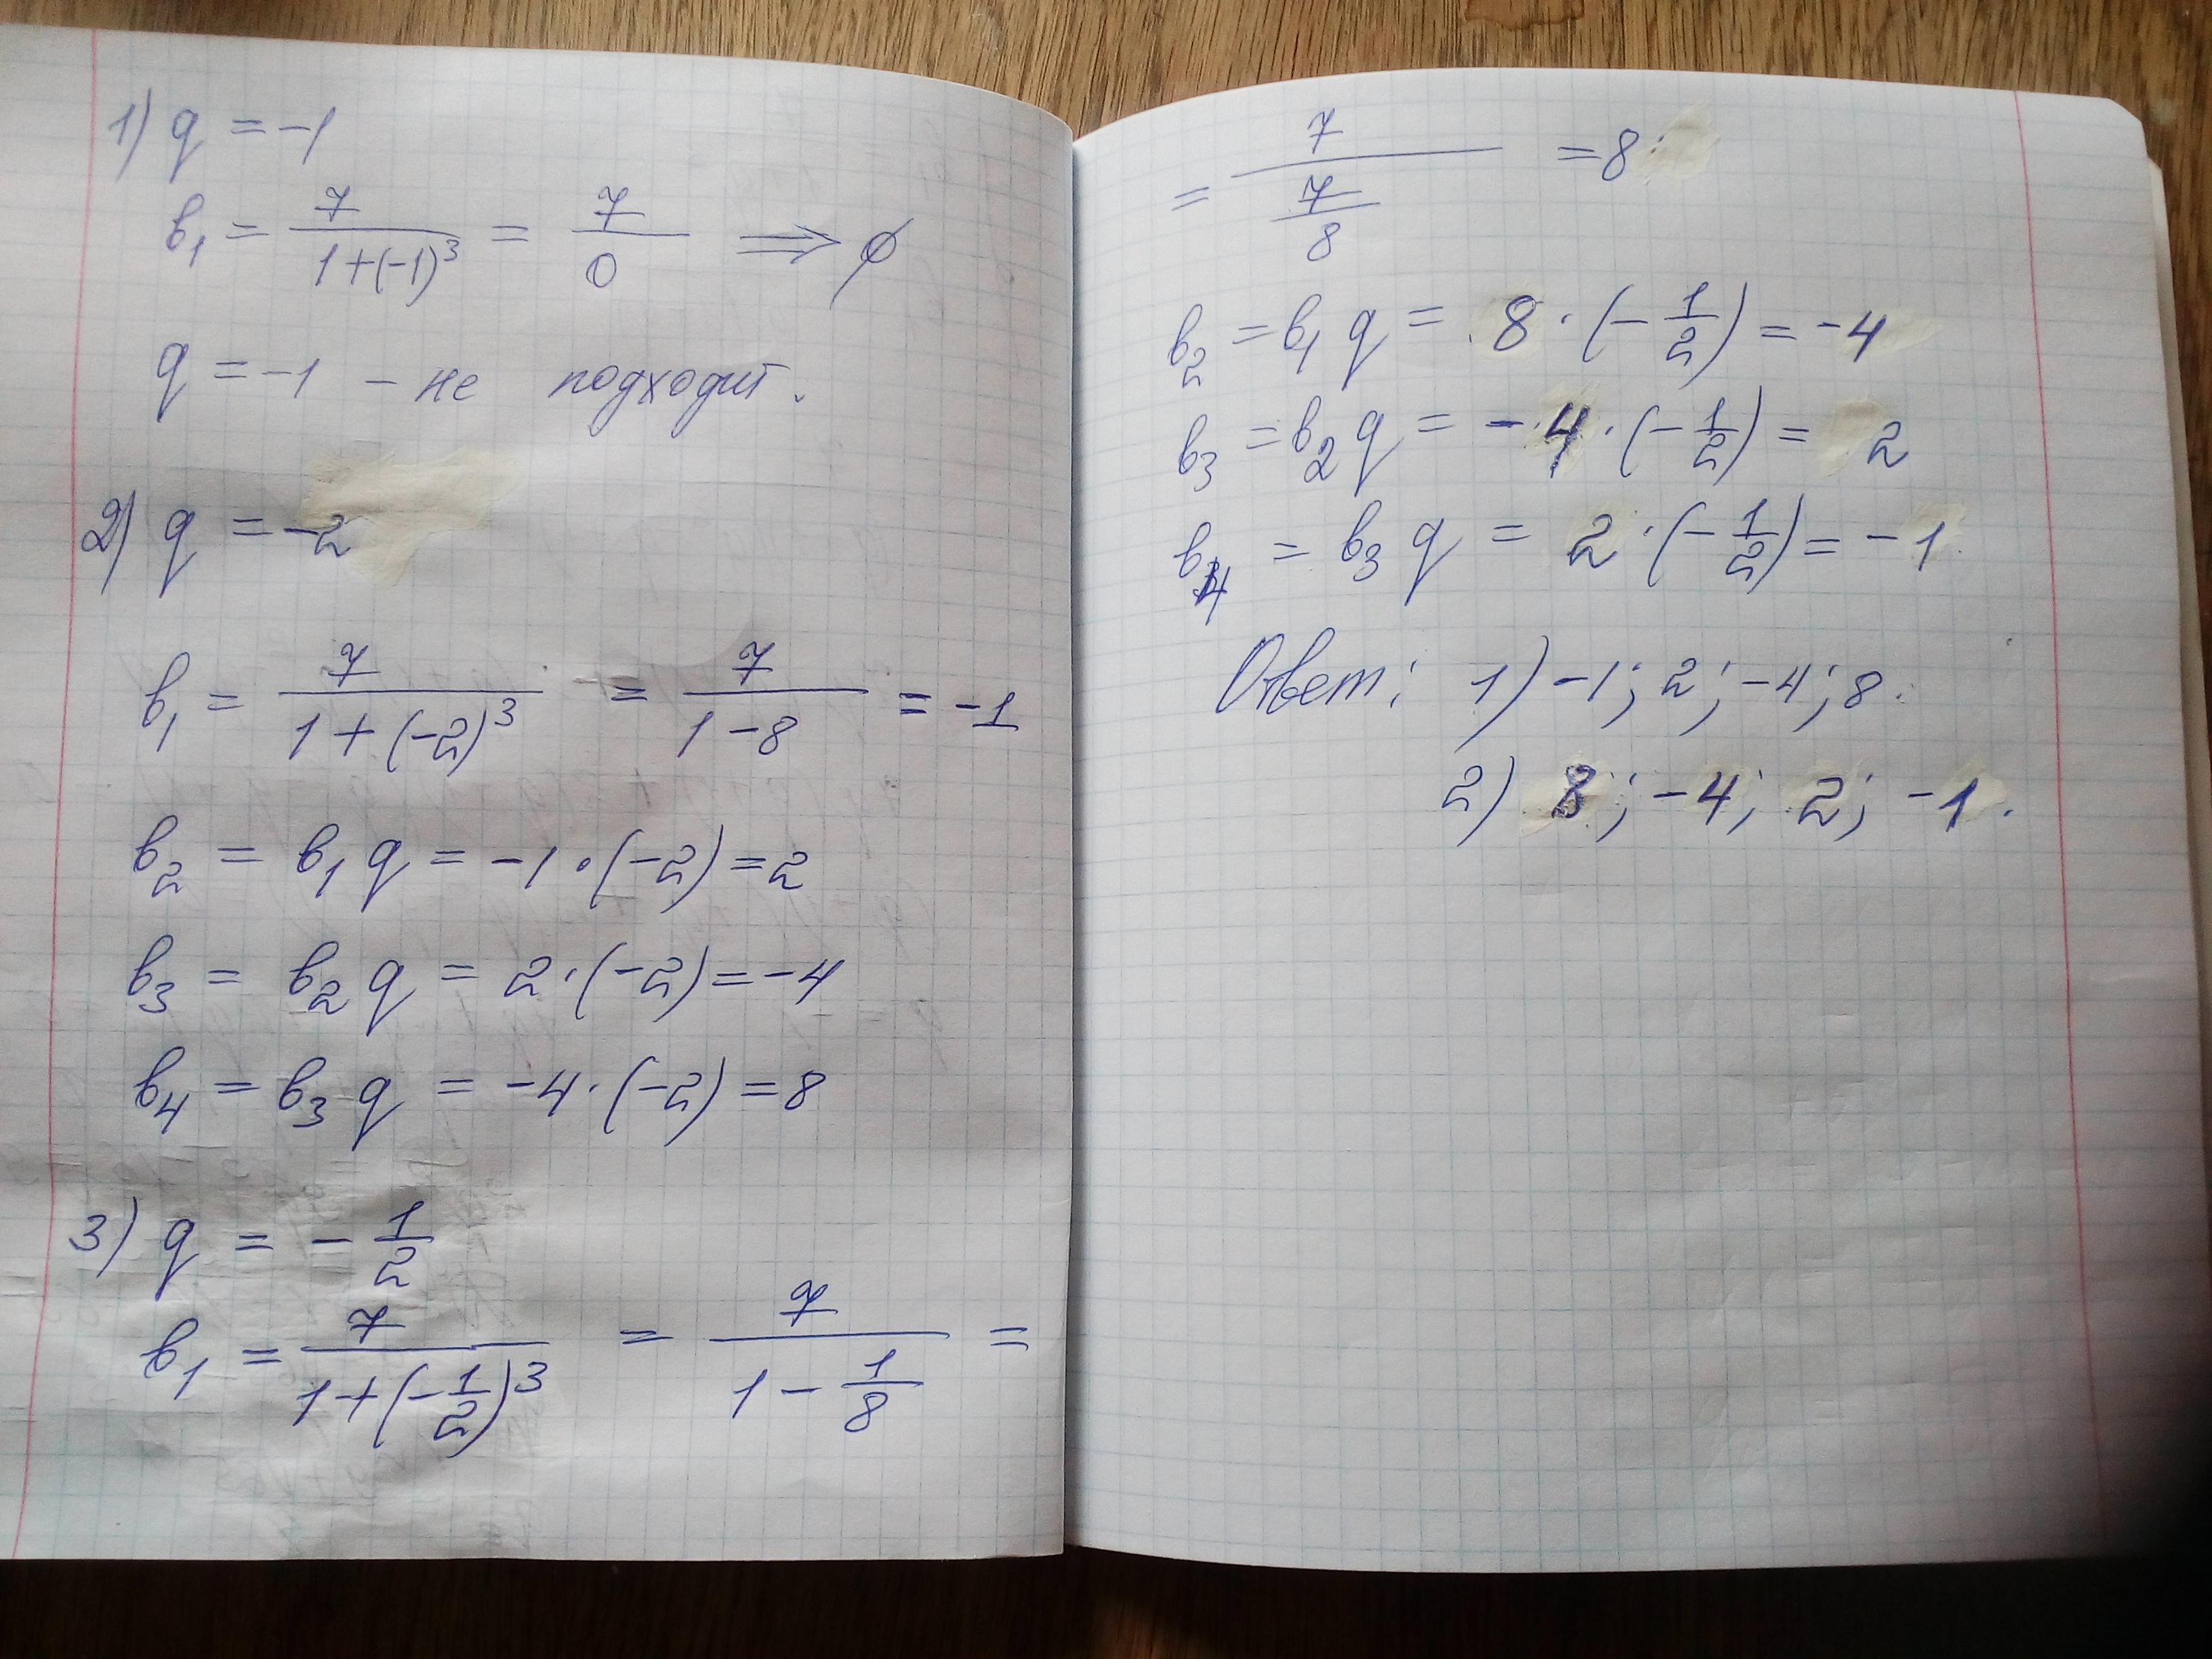 1) q = -1
b₁ = 7/(1+(-1)³) = 7/0 ⟹ ∅
q = -1 - не подходит.
2) q = -2
b₁ = 7/(1+(-2)³) = 7/(1-8) = -1
b₂ = b₁q = -1·(-2) = 2
b₃ = b₂q = 2·(-2) = -4
b₄ = b₃q = -4·(-2) = 8
3) q = -1/2
b₁ = 7/(1+(-1/2)³) = 7/(1-1/8) =
= 7/(7/8) = 8
b₂ = b₁q = 8·(-1/2) = -4
b₃ = b₂q = -4·(-1/2) = 2
b₄ = b₃q = 2·(-1/2) = -1
Ответ: 1) -1; 2; -4; 8.
2) 8; -4; 2; -1.